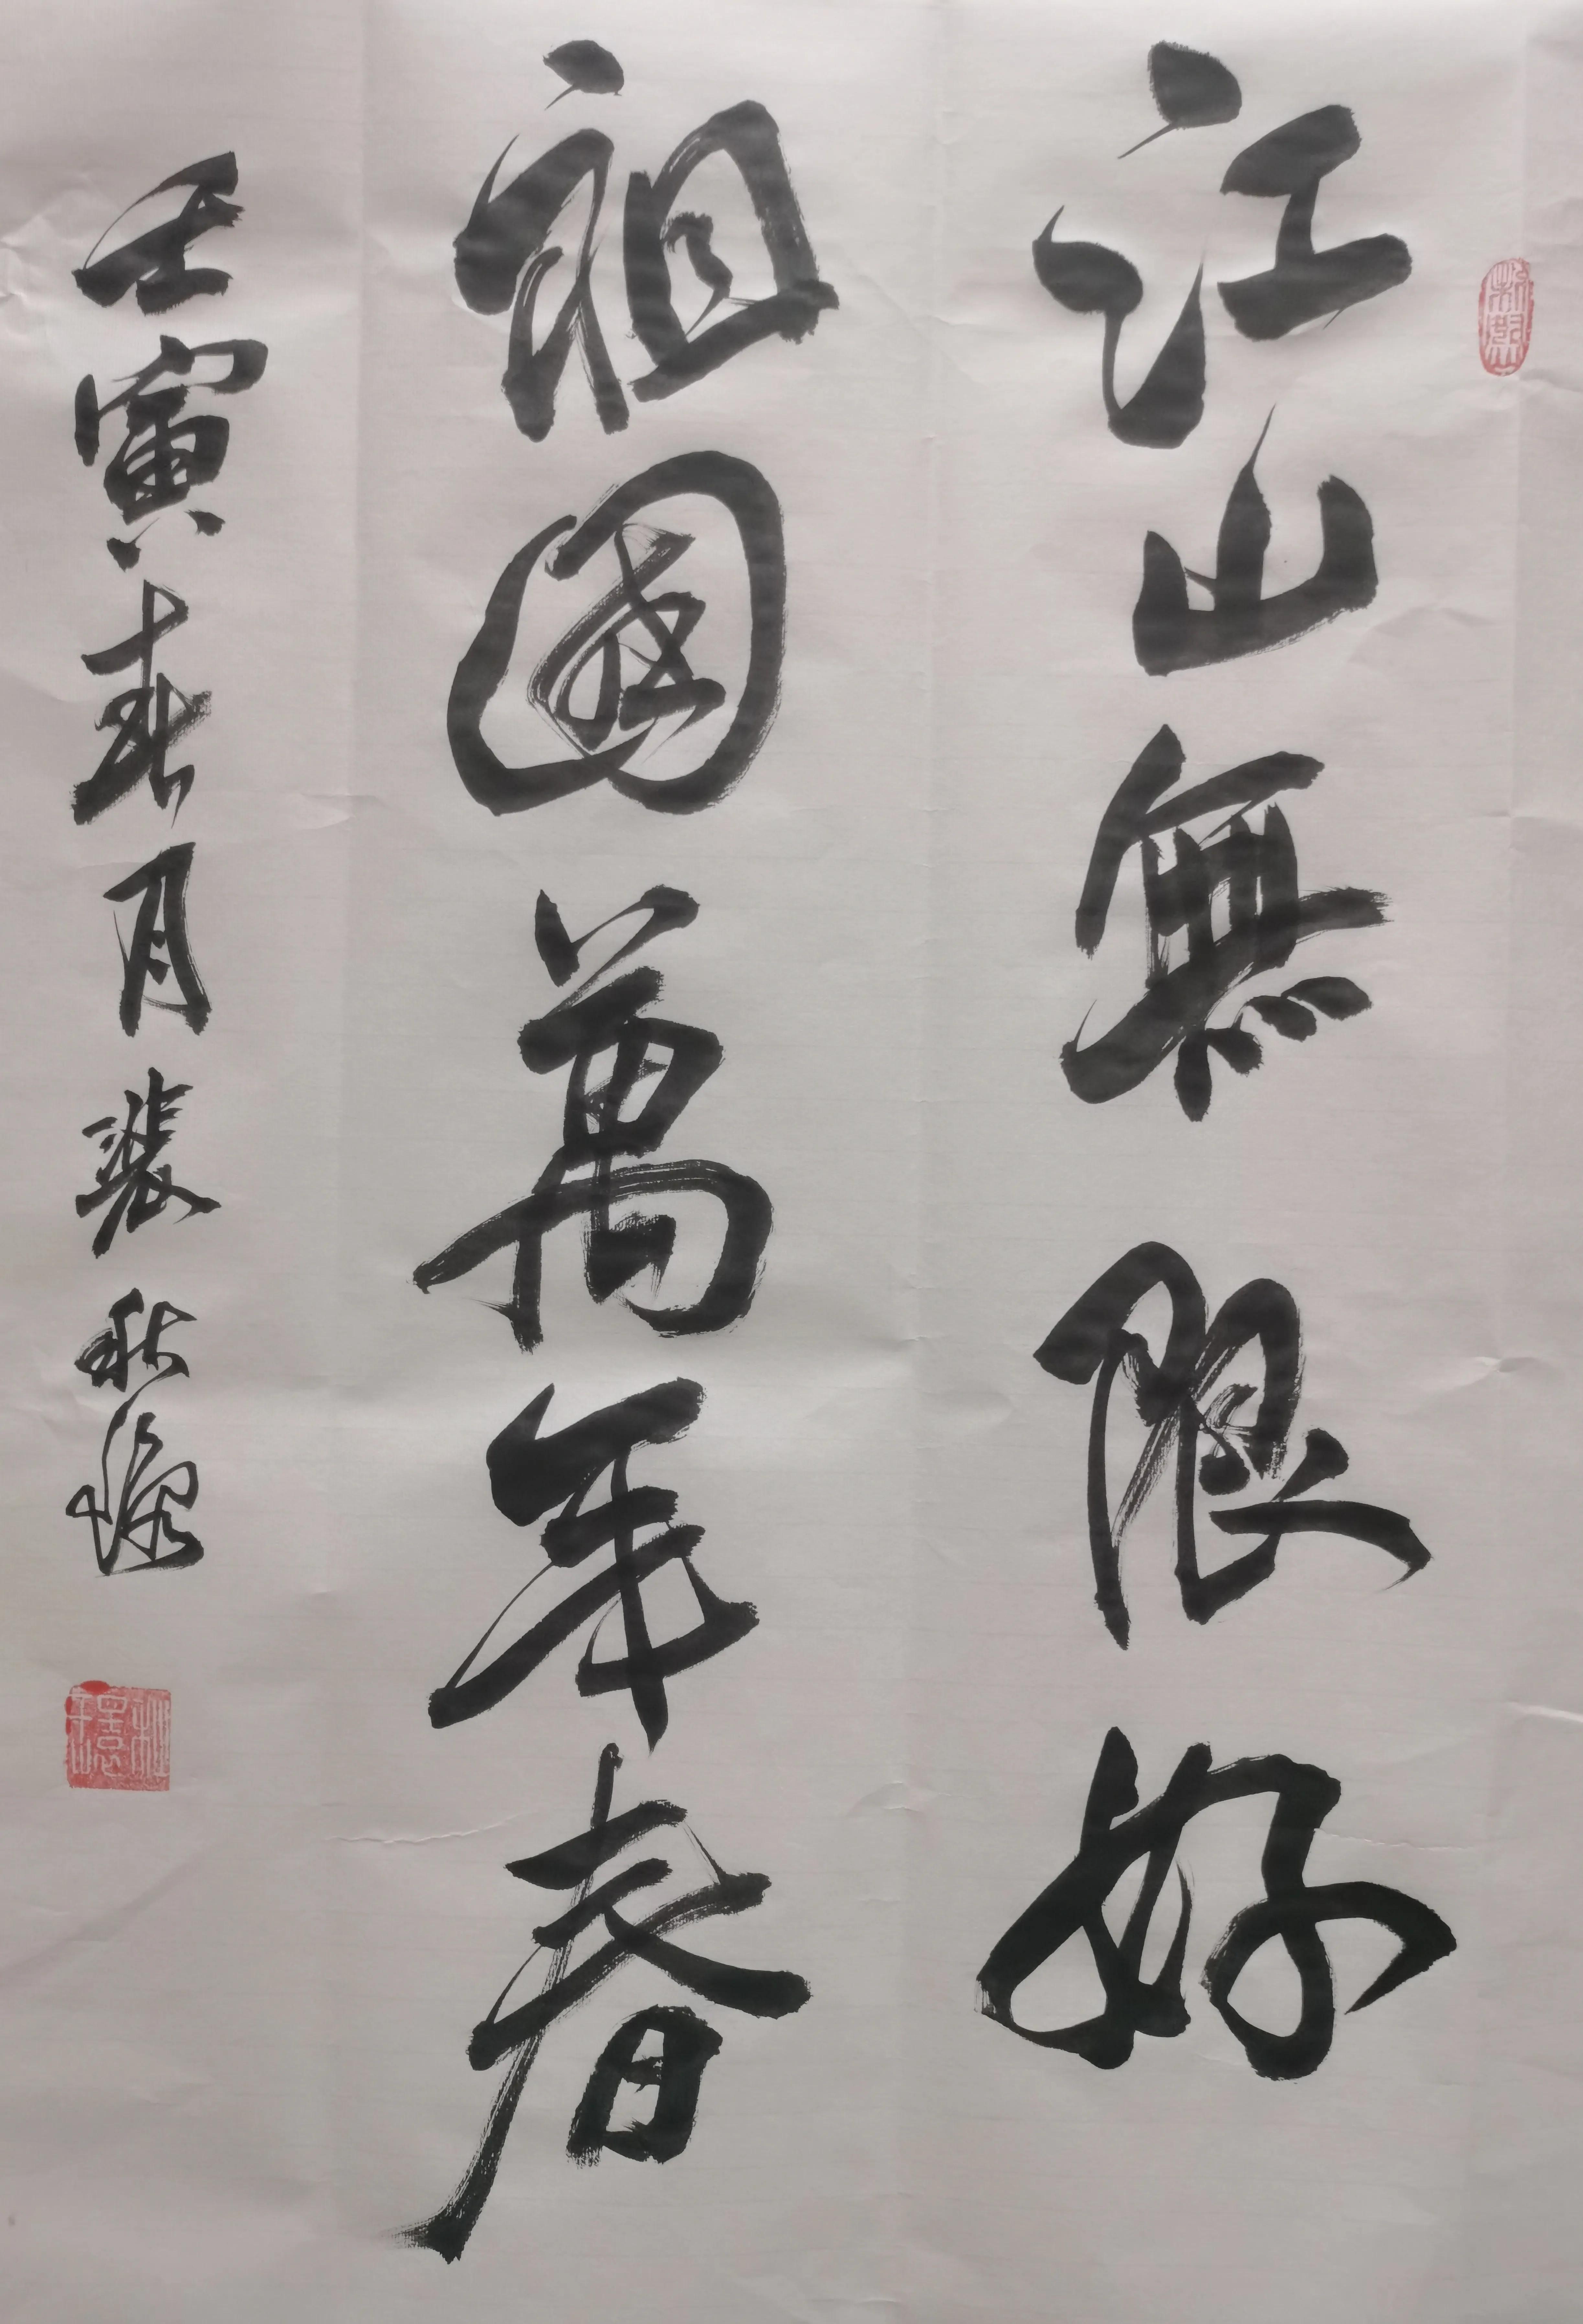 江山無限好
祖國萬年春
壬寅春月裴秋